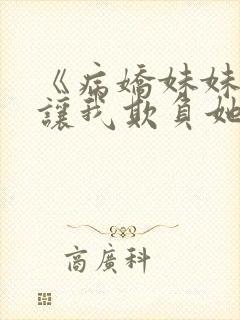 《病嬌妹妹
讓我欺負她
高廣科